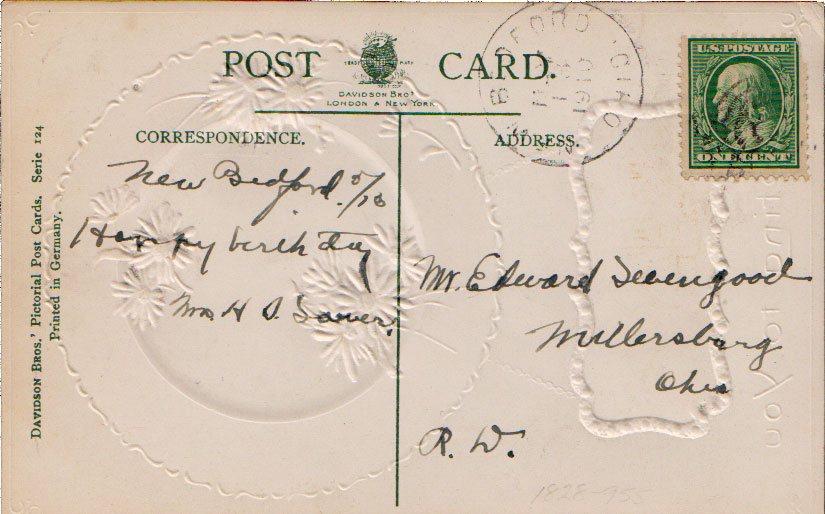 POST CARD.
TRADE MARK
DAVIDSON BROS
LONDON & NEW YORK
CORRESPONDENCE.
ADDRESS.
U.S. POSTAGE
ONE CENT
1910
OHIO
New Bedford. 5/10
Happy birth day
Mrs. H. D. Sower.
Mr. Edward Levengood
Millersburg
Ohio
R. D.
DAVIDSON BROS.' Pictorial Post Cards. Serie 124
Printed in Germany.
1828-755